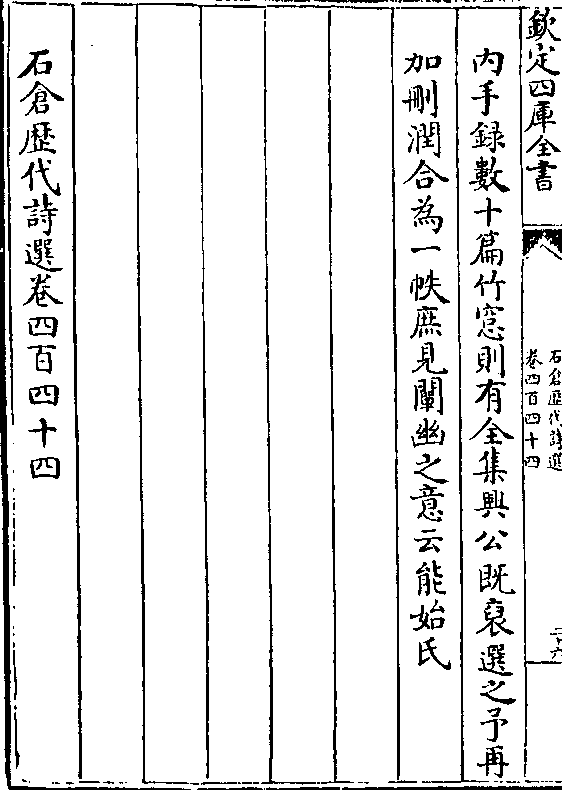 欽定四庫全書
石倉歷代詩選
卷四百四十四
二十六
内手録數十篇竹窓則有全集興公既裒選之予再
加刪潤合為一帙庶見闡幽之意云能始氏
石倉歷代詩選卷四百四十四